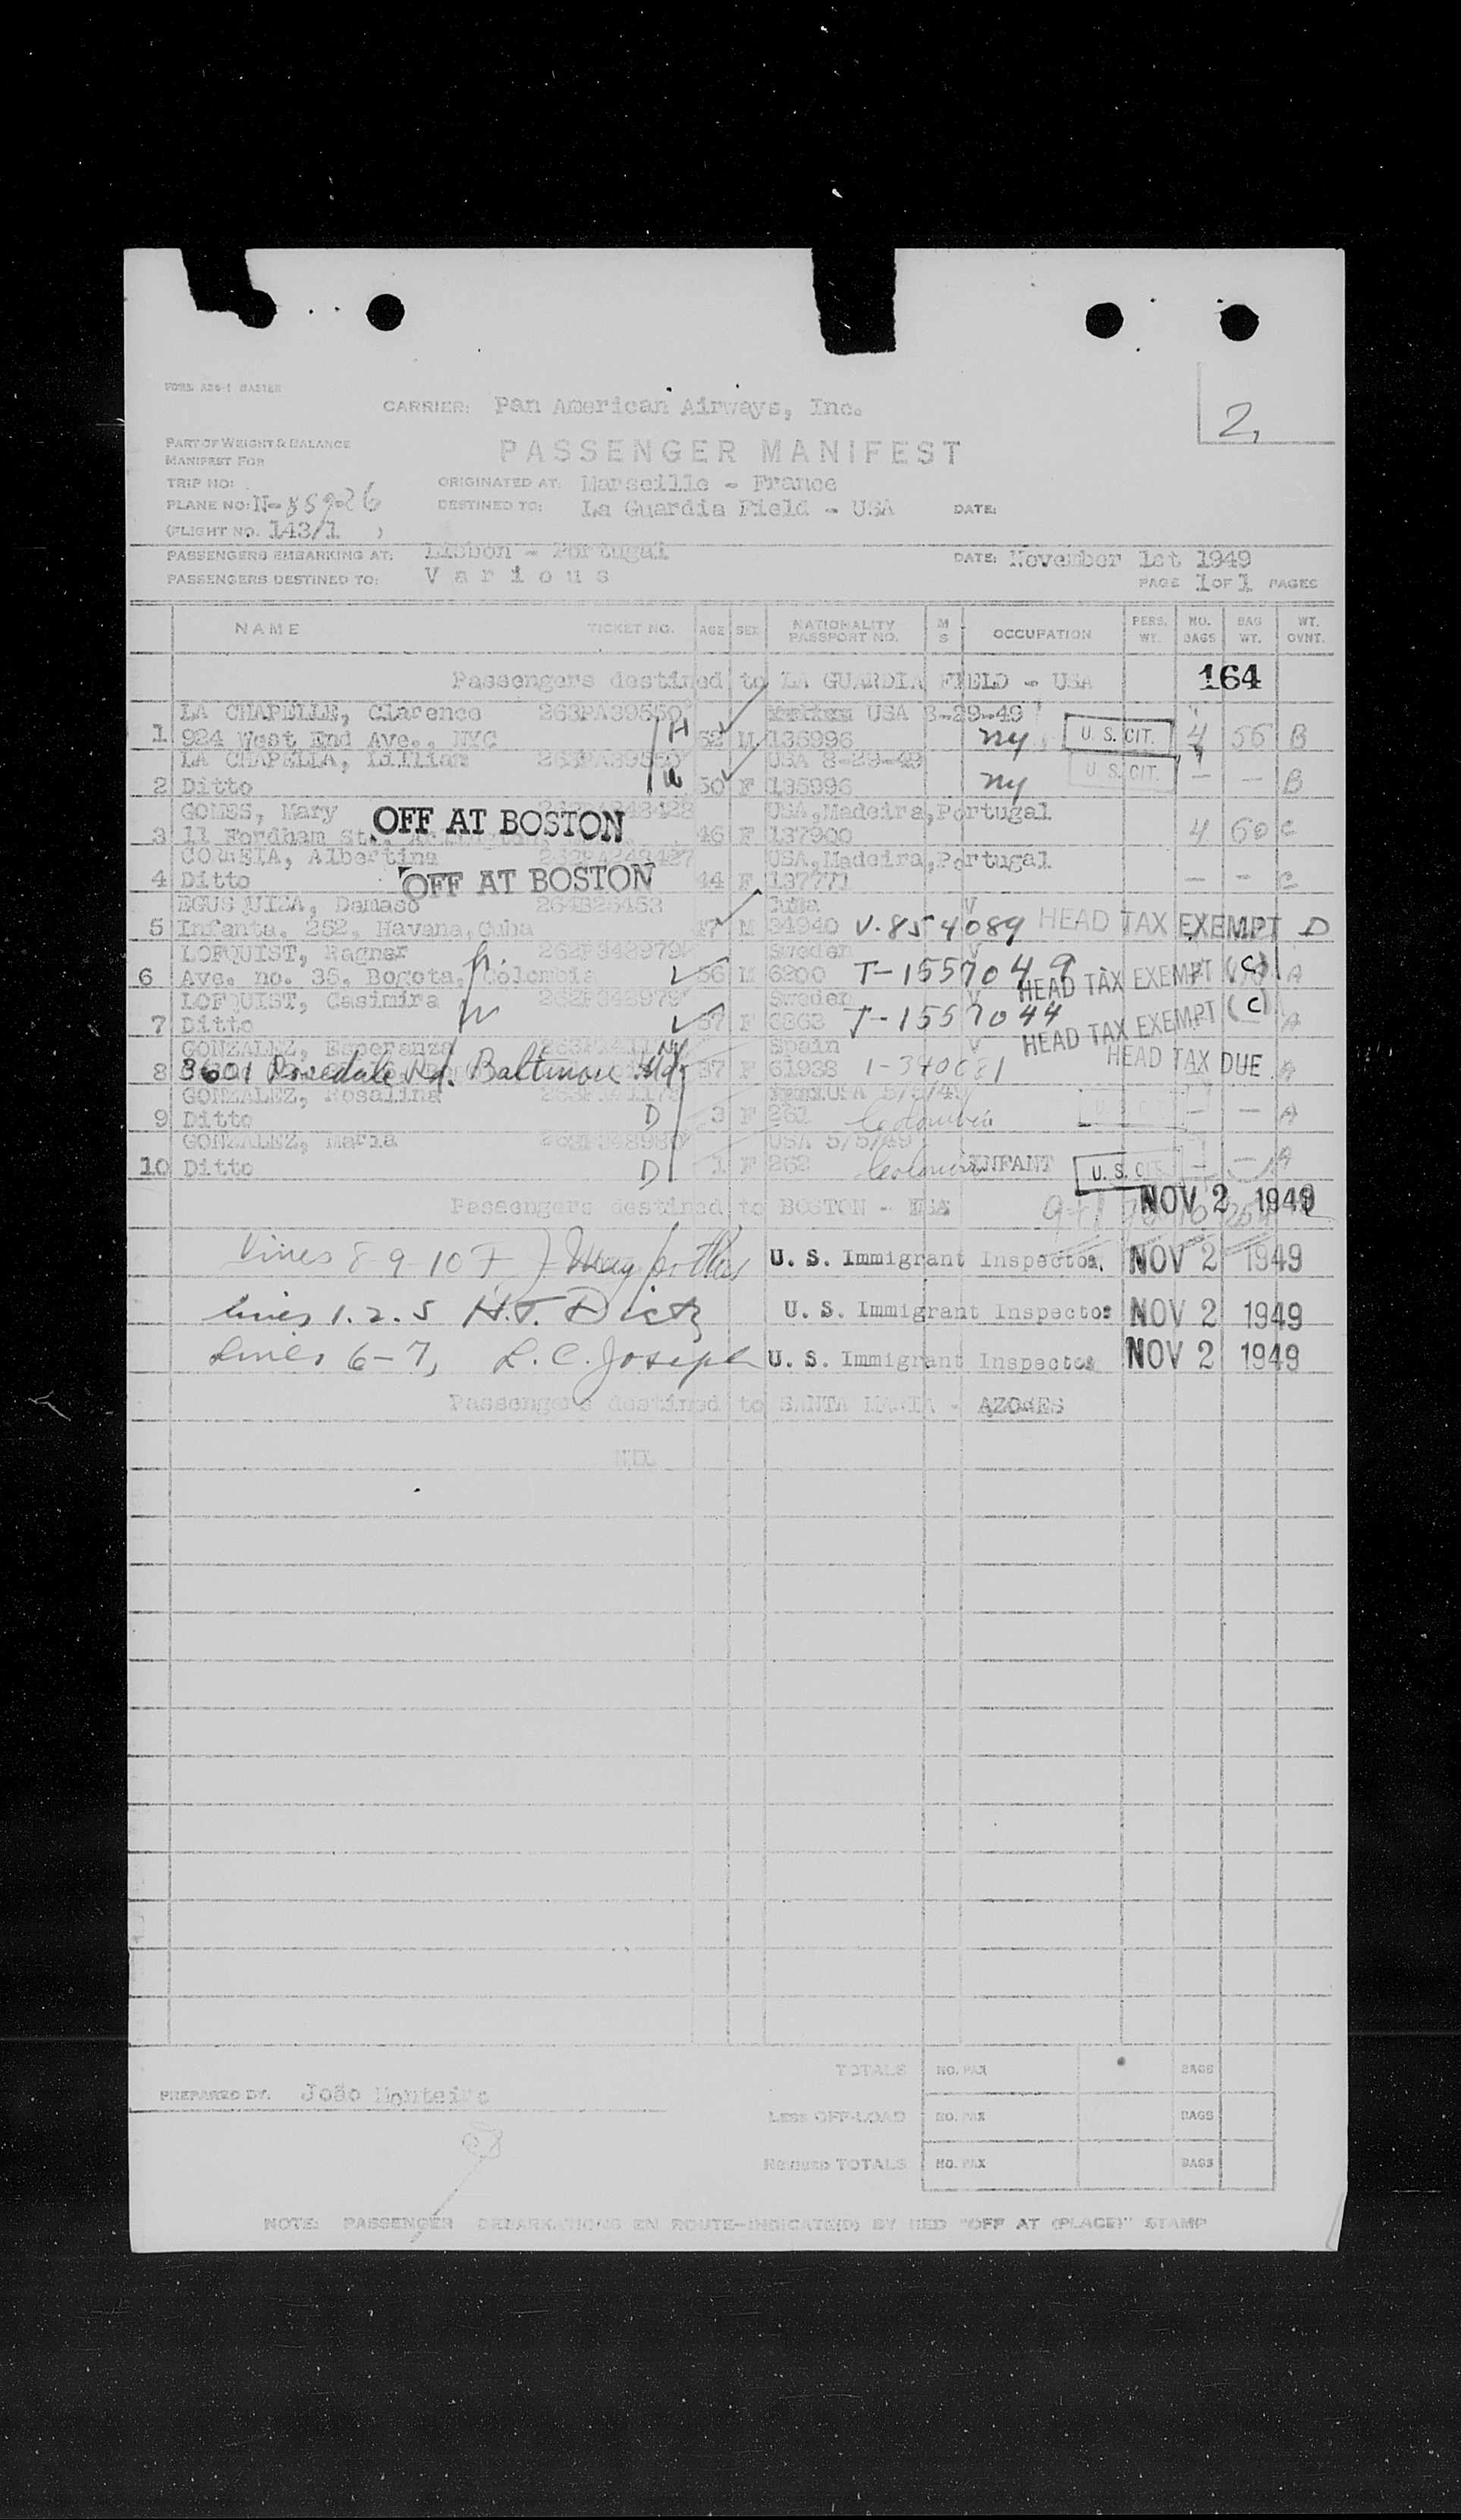 CARRIER: Pan American Airways, Inc.
2,
PART OF WEIGHT & BALANCE
MANIFEST FOR
PASSENGER MANIFEST
TRIP NO:
ORIGINATED AT: Marseille - France
PLANE NO: N-85926
DESTINED TO: La Guardia Field - USA DATE:
(FLIGHT NO. 143/1 )
PASSENGERS EMBARKING AT: Lisbon - Portugal DATE: November 1st 1949
PASSENGERS DESTINED TO: Various PAGE 1 OF 1 PAGES
NAME TICKET NO. AGE SEX NATIONALITY PASSPORT NO. M S OCCUPATION PERS. WT. NO. BAGS BAG WT. WT. OVNT.
Passengers destined to LA GUARDIA FIELD - USA 164
LA CHAPELLE, Clarence USA 8-29-49
1 924 West End Ave., NYC 52 M 136996 ny U. S. CIT. 4 56 B
LA CHAPELLA, Lillian USA 8-29-49
2 Ditto 50 F 136996 ny U. S. CIT. - - B
GOMES, Mary OFF AT BOSTON USA, Madeira, Portugal
3 11 Fordham St., 46 F 137900 4 60 C
CORREIA, Albertina USA, Madeira, Portugal
4 Ditto OFF AT BOSTON 44 F - - C
EGUSQUIZA, Damaso Cuba V
5 Infanta, 252, Havana, Cuba 47 M 34940 V-854089 HEAD TAX EXEMPT D
LOFQUIST, Ragnar Sweden V
6 Ave. no. 35, Bogota, Colombia 56 M 6200 T-1557049 HEAD TAX EXEMPT (C) A
LOFQUIST, Casimira Sweden V
7 Ditto 57 F T-1557044 HEAD TAX EXEMPT (C) A
GONZALEZ, Esperanza Spain V
8 3601 Rosedale Rd. Baltimore Md. 37 F 61938 1-340681 HEAD TAX DUE A
GONZALEZ, Rosalina
9 Ditto D 3 F 261 - - A
GONZALEZ, Maria USA 5/5/49
10 Ditto D 1 F 262 INFANT U. S. CIT. - - A
Passengers destined to BOSTON - USA NOV 2 1949
Lines 8-9-10 U. S. Immigrant Inspector. NOV 2 1949
lines 1.2.5 H.T. Dietz U. S. Immigrant Inspector NOV 2 1949
Lines 6-7, L.C. Joseph U. S. Immigrant Inspector NOV 2 1949
Passengers destined to SANTA MARIA - AZORES
NIL
TOTALS NO. PAX BAGS
PREPARED BY. João Monteiro
LESS OFF-LOAD NO. PAX BAGS
REVISED TOTALS NO. PAX BAGS
NOTE: PASSENGER DEBARKATIONS EN ROUTE-INDICATE(D) BY RED "OFF AT (PLACE)" STAMP